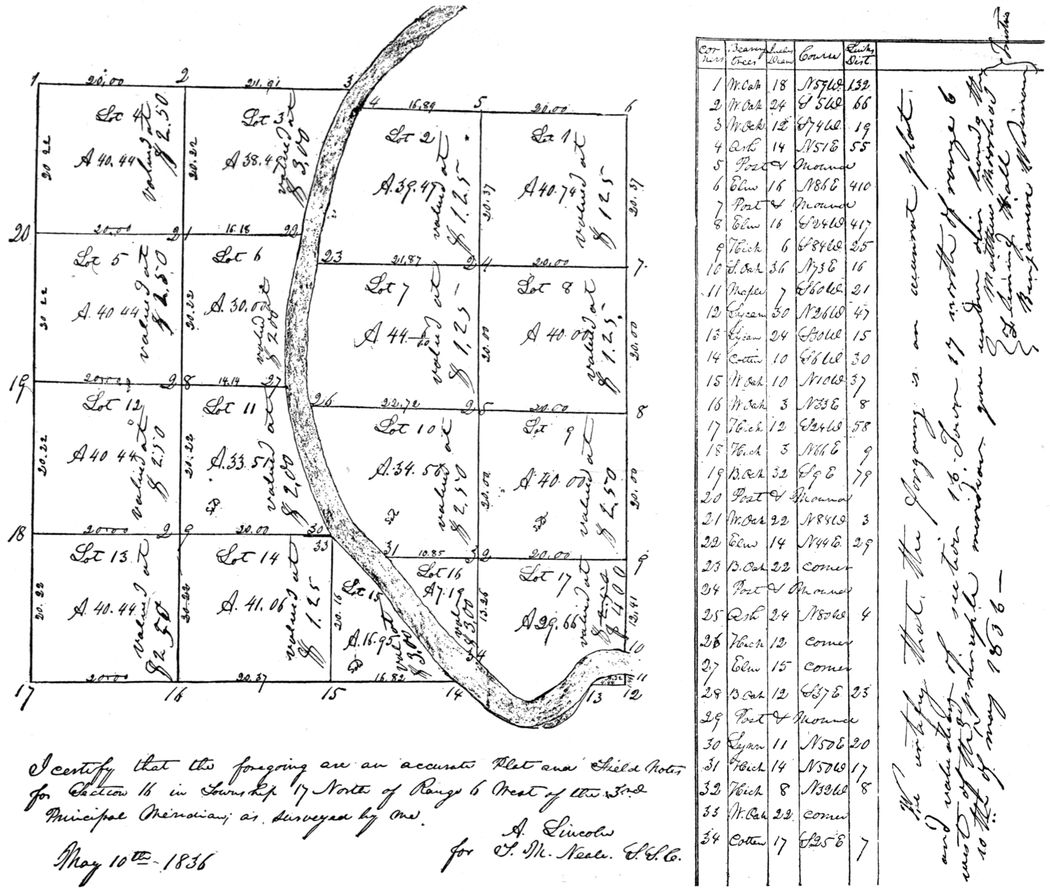 1 20.00 2 21.91 3
4 16.89 5 20.00 6
Lot 4
A 40.44
valued at
$ 2.50
Lot 3
A 38.4
valued at
$ 3.00
Lot 2
A 39.47
valued at
$ 1.25
Lot 1
A 40.74
valued at
$ 125
20.22
20.22
20.37
20.37
20 20.00 21 16.18 22
23 21.87 24 20.00 7
Lot 5
A 40 44
valued at
$ 2.50
Lot 6
A. 30.00
valued at
$ 200
Lot 7
A 44
valued at
$ 1.25
Lot 8
A 40.00
valued at
$ 1.25
20.22
20.22
20.00
20.00
19 20.00 28 14.14 27
26 22.72 25 20.00 8
Lot 12
A 40 44
valued at
$ 2.50
Lot 11
A. 33.51
valued at
$ 2.00
Lot 10
A. 34.50
valued at
$ 2.50
Lot 9
A 40.00
valued at
$ 2.50
20.22
20.22
20.00
20.00
18 20.00 29 20.00 30
33
31 10.85 32 20.00 9
Lot 13
A 40.44
valued at
$ 2.50
Lot 14
A. 41.06
valued at
$ 1.25
Lot 15
A. 16.95
valued at
$ 3.00
Lot 16
A 7.19
val
$ 3.00
Lot 17
A 29.66
valued at
$ 4.00
20.22
20.22
20.16
13.26
12.41
34
10
11
17 20.00 16 20.37 15 16.82 14 13 12
I certify that the foregoing are an accurate Plat and Field Notes
for Section 16 in Township 17 North of Range 6 West of the 3rd
Principal Meridian; as surveyed by me.
May 10th 1836
A. Lincoln
for T. M. Neale. S.S.C.
Corners Bearing Trees Inches Diam Course Links Dist
1 W. Oak 18 N59W 132
2 W. Oak 24 S 5W 66
3 W. Oak 12 S74W 19
4 Ash 14 N51E 55
5 Post & Mound
6 Elm 16 N86E 410
7 Post & Mound
8 Elm 16 S24W 417
9 Hick 6 S84W 25
10 S. Oak 36 N73E 16
11 Maple 7 S60W 21
12 Sycam 30 N26W 47
13 Sycam 24 S30W 15
14 Cotton 10 S6W 30
15 W. Oak 10 N10W 37
16 W. Oak 3 N33E 8
17 Hick 12 S24W 58
18 Hick 3 N66E 9
19 B. Oak 32 S9E 79
20 Post & Mound
21 W. Oak 22 N88W 3
22 Elm 14 N44E 29
23 B. Oak 22 corner
24 Post & Mound
25 Ash 24 N80W 4
26 Hick 12 corner
27 Elm 15 corner
28 B. Oak 12 S37E 23
29 Post & Mound
30 Lynn 11 N50E 20
31 Hick 14 N50W 17
32 Hick 8 N32W 8
33 W. Oak 22 corner
34 Cotton 17 S25E 7
We certify that the forgoing is an accurate plat
and valuation of section 16 Town 17 north of range 6
west of the 3rd principle meridian given under our hand this
10th of may 1836 —
Trustees